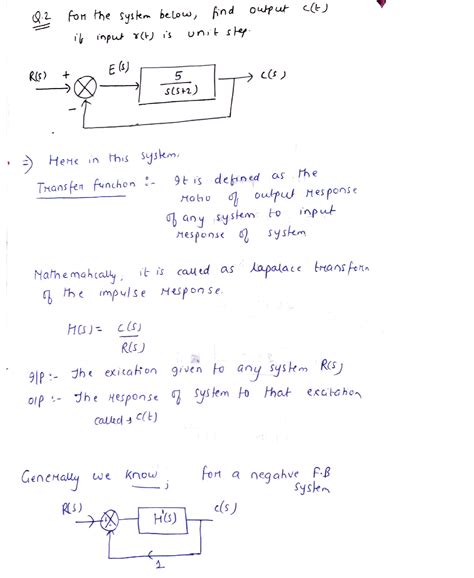 Q.2 For the system below, find output c(t)
if input r(t) is unit step.
R(s) + E(s) 5 C(s)
s(s+2)
-
=) Here in this system.
Transfer function :- It is defined as the
ratio of output response
of any system to input
response of system
Mathematically, it is called as lapalace transform
of the impulse response.
H(s) = C(s)
R(s)
I/P :- The exication given to any system R(s)
O/P :- The response of system to that excitation
called C(t)
Generally we know, for a negative F.B
system
R(s) H'(s) C(s)
1